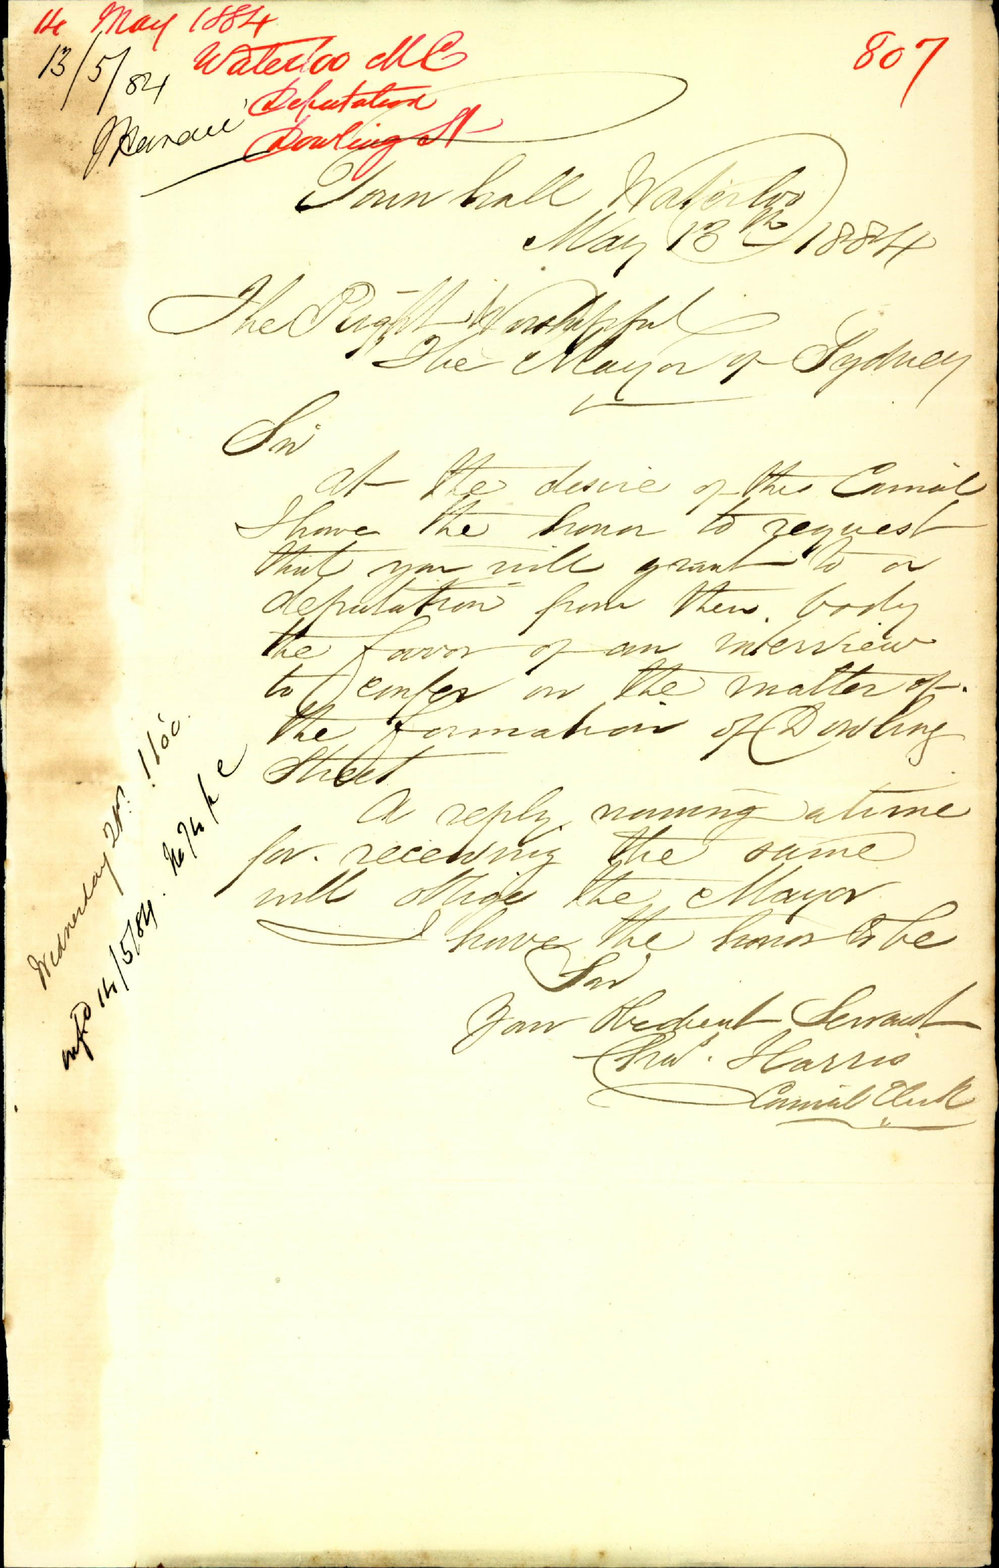 14 May 1884
807
13/5/84
Waterloo MC
Deputation
Dowling St
Town hall Waterloo
May 13th 1884
The Right Worshipful
The Mayor of Sydney
Sir
At the desire of this Council
I have the honor to request
that you will grant to a
deputation from their body
the favor of an interview
to confer on the matter of
the formation of Dowling
Street
A reply naming a time
for receiving the same
will oblige the Mayor
I have the honor to be
Sir
Your Obedient Servant
Chas. Harris
Council Clerk
Wednesday
14/5/84.